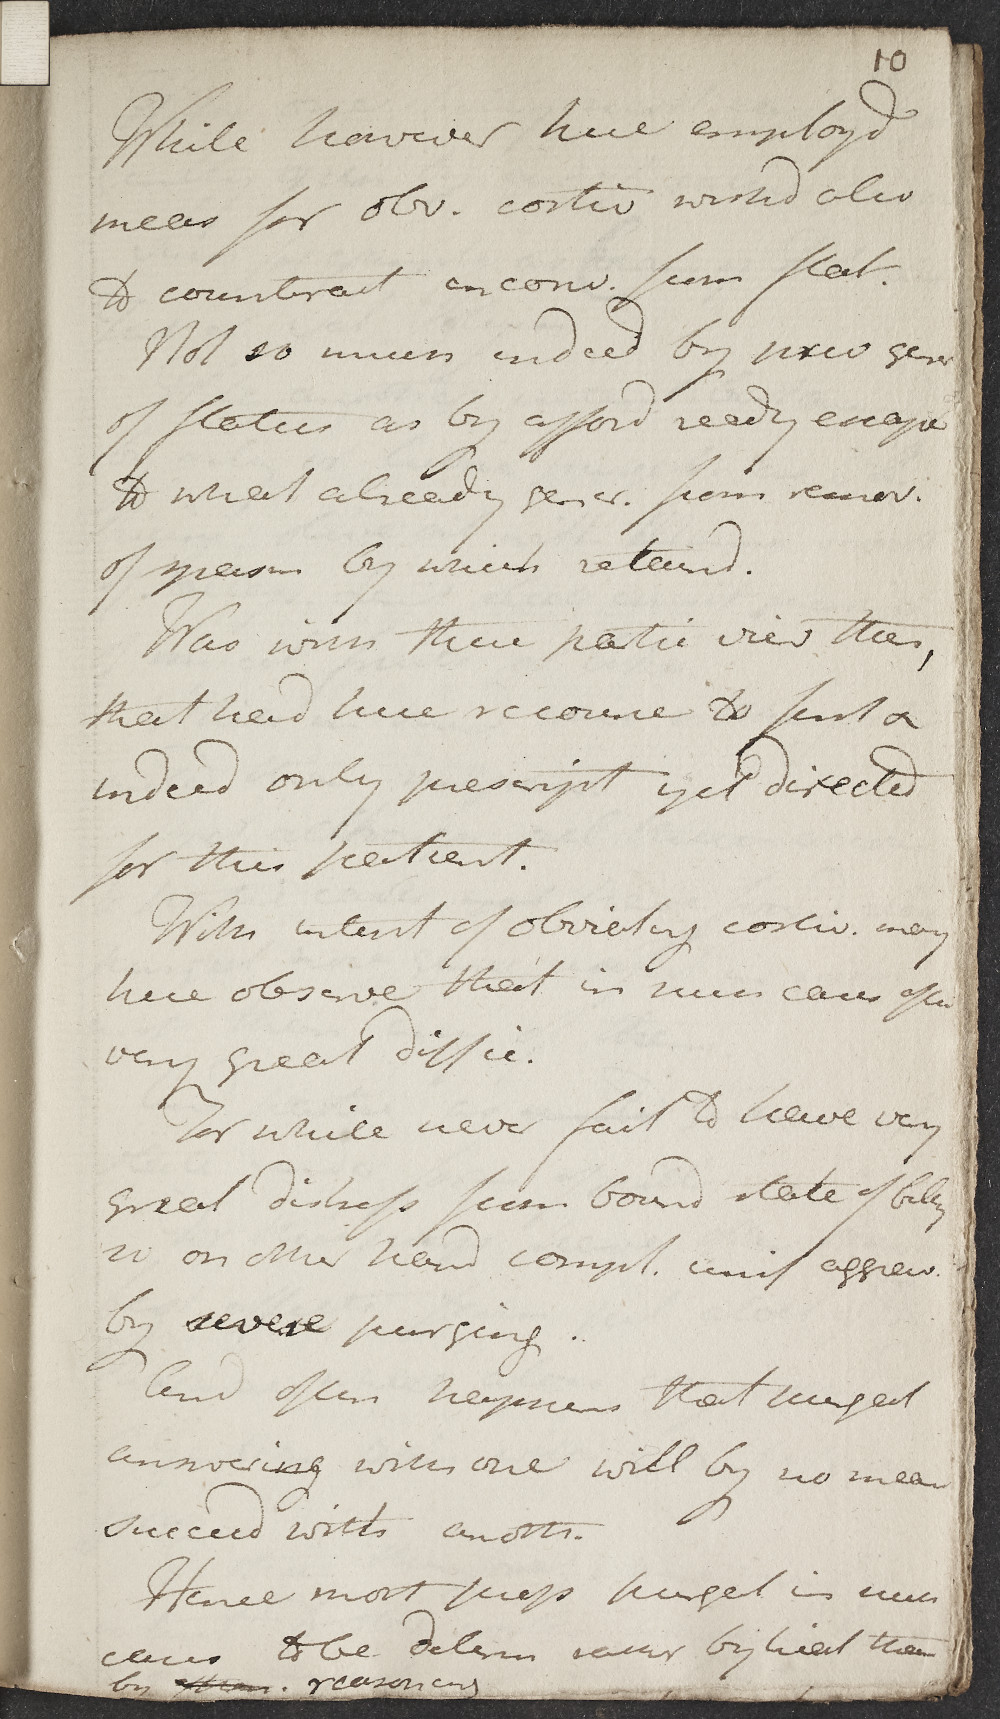 10
While however here employd
means for obv. costiv wishd also
to counteract inconv. from flat.
Not so much indeed by prev gener
of flatus as by afford ready escape
to what already gener. from remov.
of spasm by which retaind.
Was with these partic views then,
that had here recourse to first &
indeed only prescript yet directed
for this patient.
With intent of obviating costiv. may
here observe that in such cases often
very great diffic.
For while never fail to have very
great distress from bound state of belly
so on other hand compl. much aggrav.
by severe purging.
And often happens that purgat
answering with one will by no mean
succeed with anoth.
Hence most prop purgat in such
cases to be determ rather by trial than
by reasoning